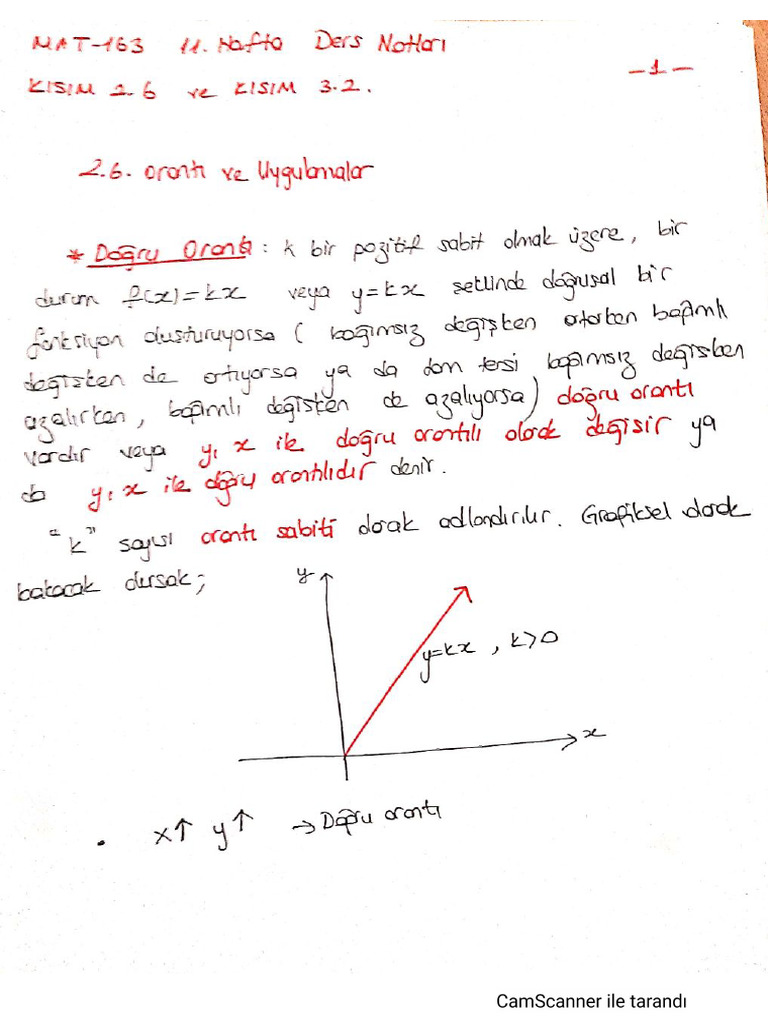 MAT-163 11. Hafta Ders Notları
-1-
KISIM 2.6 ve KISIM 3.2.
2.6. Orantı ve Uygulamalar
* Doğru Orantı : k bir pozitif sabit olmak üzere, bir
durum f(x)=kx veya y=kx şeklinde doğrusal bir
fonksiyon oluşturuyorsa ( bağımsız değişken artarken bağımlı
değişken de artıyorsa ya da tam tersi bağımsız değişken
azalırken, bağımlı değişken de azalıyorsa) doğru orantı
vardır veya y, x ile doğru orantılı olarak değişir ya
da y, x ile doğru orantılıdır denir.
"k" sayısı orantı sabiti olarak adlandırılır. Grafiksel olarak
bakacak olursak;
y
y=kx , k>0
x
. x↑ y↑ → Doğru orantı
CamScanner ile tarandı